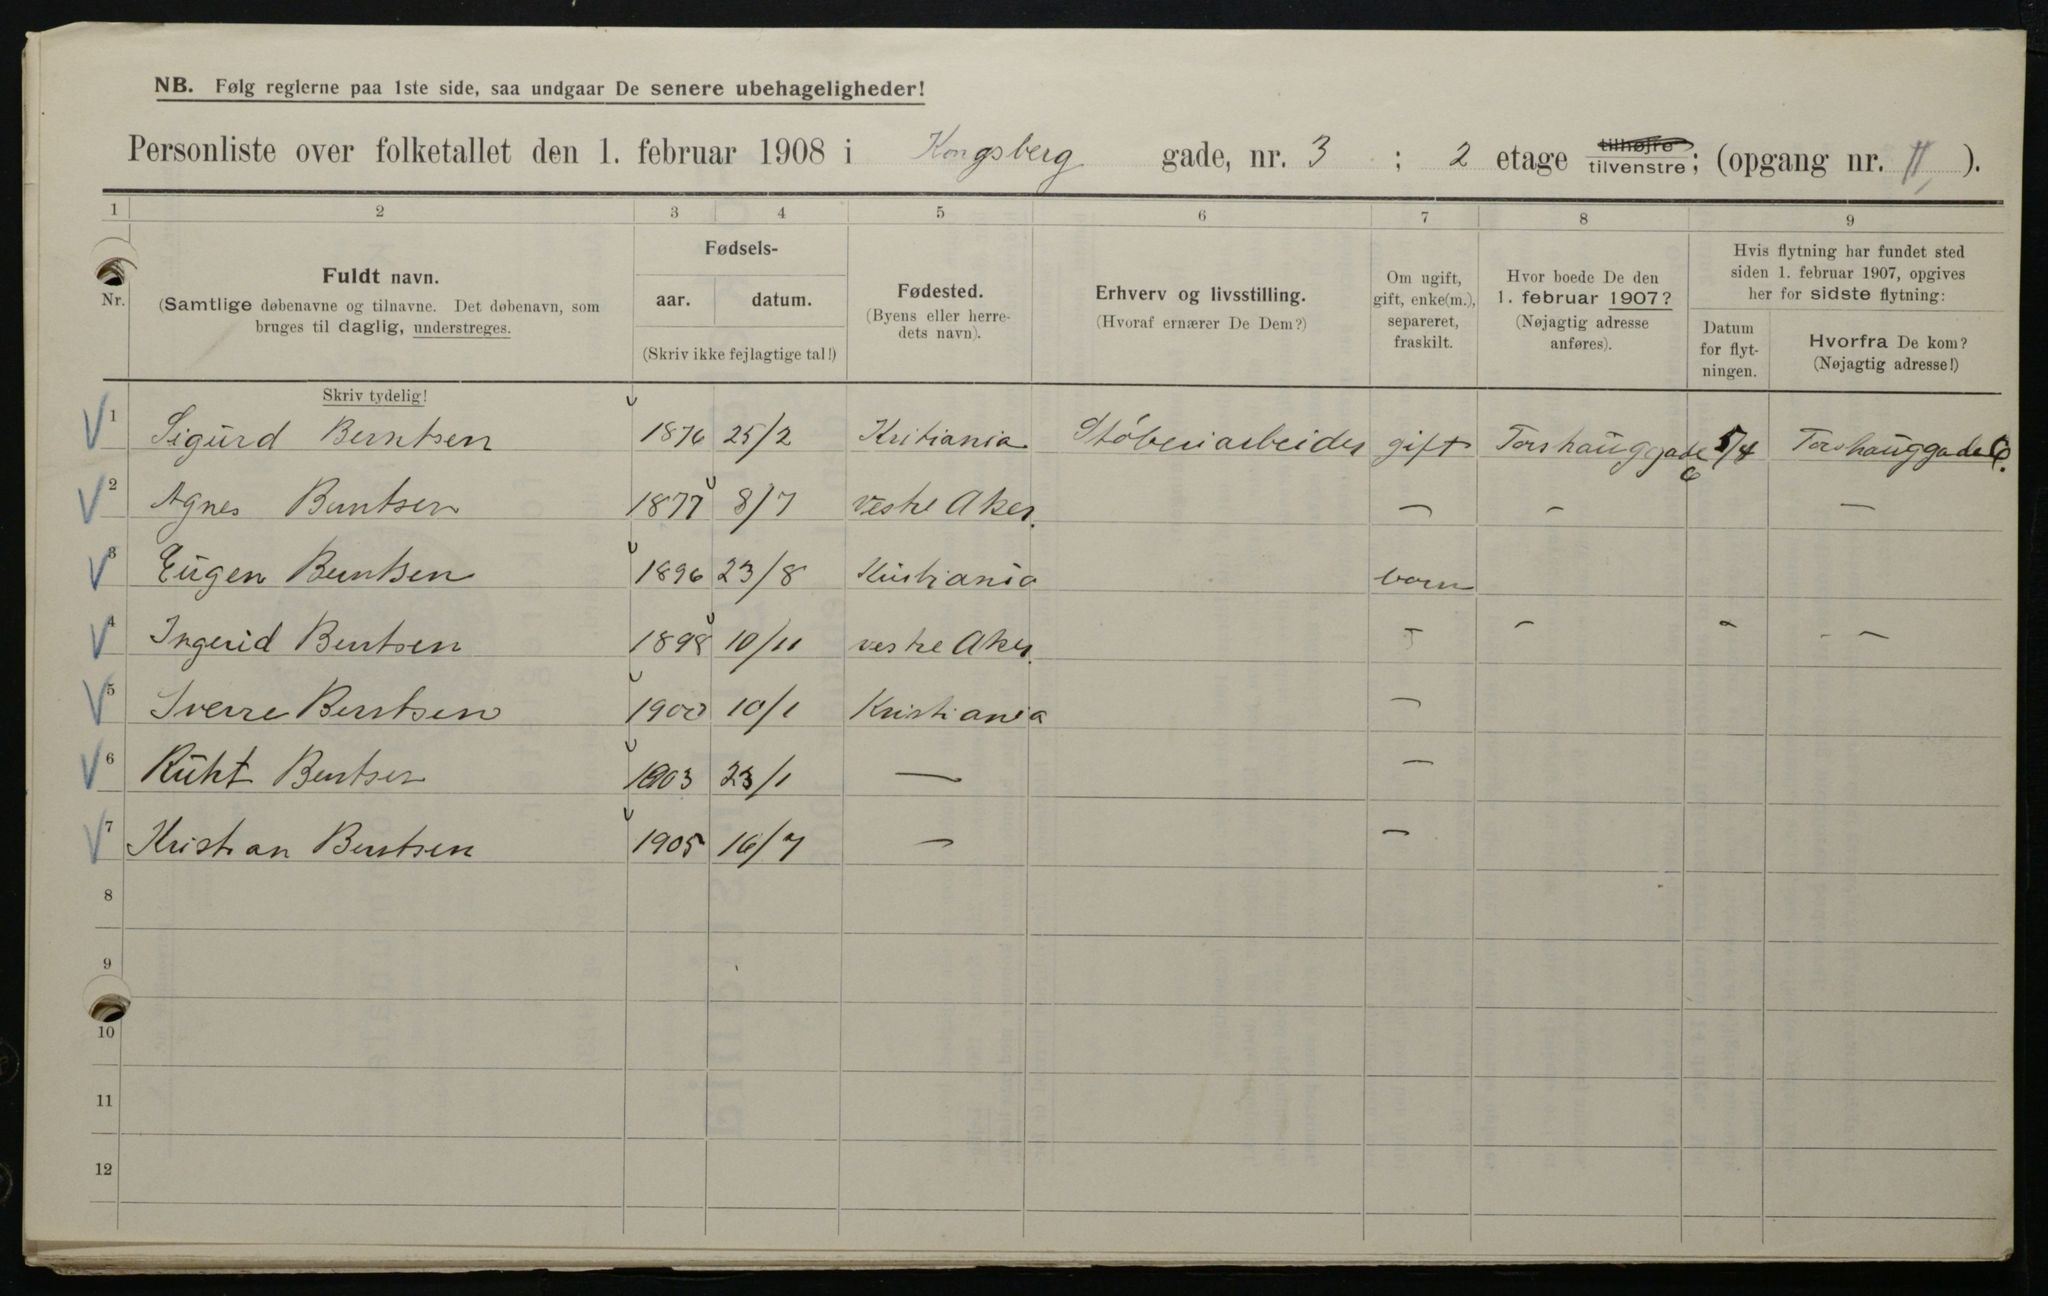 NB. Følg reglerne paa 1ste side, saa undgaar De senere ubehageligheder!
Personliste over folketallet den 1. februar 1908 i Kongsberg gade, nr. 3 ; 2 etage tilhøjre/tilvenstre; (opgang nr. II, ).
1 2 3 4 5 6 7 8 9
Nr.
Fuldt navn.
(Samtlige døbenavne og tilnavne. Det døbenavn, som
bruges til daglig, understreges.
Fødsels-
aar. datum.
(Skriv ikke fejlagtige tal!)
Fødested.
(Byens eller herre-
dets navn).
Erhverv og livsstilling.
(Hvoraf ernærer De Dem?)
Om ugift,
gift, enke(m.),
separeret,
fraskilt.
Hvor boede De den
1. februar 1907?
(Nøjagtig adresse
anføres).
Hvis flytning har fundet sted
siden 1. februar 1907, opgives
her for sidste flytning:
Datum
for flyt-
ningen.
Hvorfra De kom?
(Nøjagtig adresse!)
Skriv tydelig!
1 Sigurd Berntsen 1876 25/2 Kritiania Støberiarbeider gift Torshauggade 6 5/4 Torshauggade 6.
2 Agnes Berntsen 1877 8/7 vestre Aker. — — —
3 Eugen Berntsen 1896 23/8 Kristiania barn
4 Ingerid Berntsen 1898 10/11 vestre Aker. — — — —
5 Sverre Berntsen 1900 10/1 Kristiania —
6 Ruht Berntsen 1903 23/1 — —
7 Kristian Berntsen 1905 16/7 — —
8
9
10
11
12